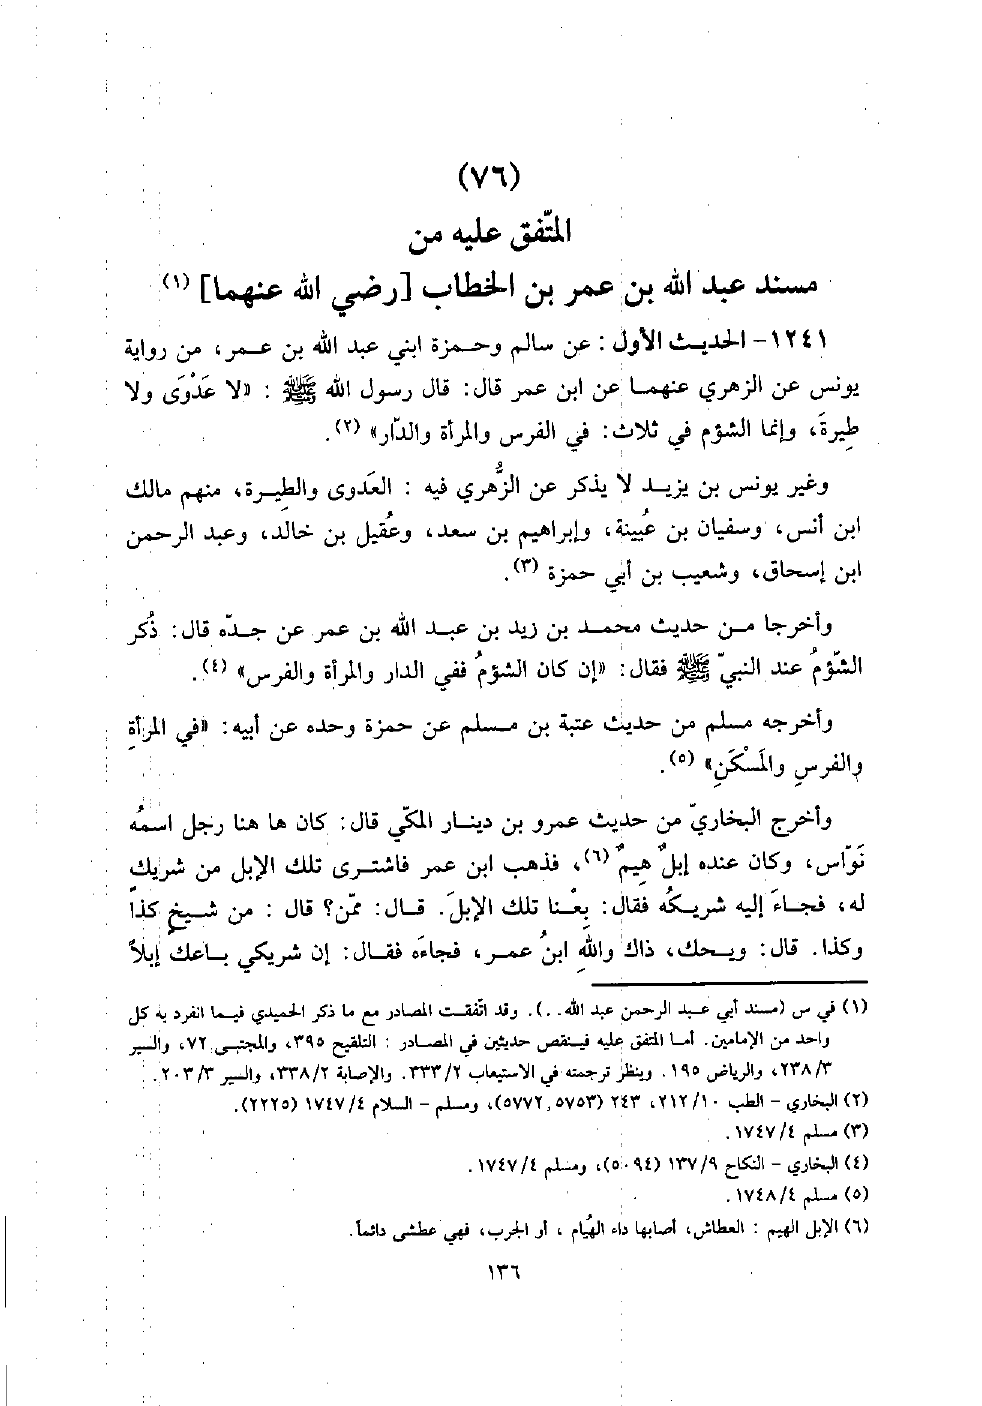 (٧٦)
المتّفق عليه من
مسند عبد الله بن عمر بن الخطاب [رضي الله عنهما] (١)
١٢٤١- الحديث الأول : عن سالم وحمزة ابني عبد الله بن عمر، من رواية
يونس عن الزهري عنهما عن ابن عمر قال: قال رسول الله ﷺ : «لا عَدْوَى ولا
طِيرةَ، وإنما الشؤم في ثلاث: في الفرس والمرأة والدّار» (٢).
وغير يونس بن يزيد لا يذكر عن الزُّهري فيه : العَدوى والطِيرة، منهم مالك
ابن أنس، وسفيان بن عُيينة، وإبراهيم بن سعد، وعُقيل بن خالد، وعبد الرحمن
ابن إسحاق، وشعيب بن أبي حمزة (٣).
وأخرجا من حديث محمد بن زيد بن عبد الله بن عمر عن جدّه قال: ذُكر
الشّؤمُ عند النبيّ ﷺ فقال: «إن كان الشؤمُ ففي الدار والمرأة والفرس» (٤).
وأخرجه مسلم من حديث عتبة بن مسلم عن حمزة وحده عن أبيه: «في المرأةِ
والفرسِ والمَسْكَنِ» (٥).
وأخرج البخاريّ من حديث عمرو بن دينار المكّي قال: كان ها هنا رجل اسمُه
نَوّاس، وكان عنده إبلٌ هِيمٌ (٦)، فذهب ابن عمر فاشترى تلك الإبل من شريكٍ
له، فجاءَ إليه شريكُه فقال: بِعْنا تلك الإبلَ. قال: ممّن؟ قال : من شيخٍ كذا
وكذا. قال: ويحك، ذاك واللهِ ابنُ عمر، فجاءَه فقال: إن شريكي باعك إبلاً
(١) في س (مسند أبي عبد الرحمن عبد الله..). وقد اتّفقت المصادر مع ما ذكر الحميدي فيما انفرد به كل
واحد من الإمامين. أما المتفق عليه فينقص حديثين في المصادر : التلقيح ٣٩٥، والمجتبى ٧٢، والسير
٢٣٨/٣، والرياض ١٩٥. وينظر ترجمته في الاستيعاب ٣٣٣/٢. والإصابة ٣٣٨/٢، والسير ٢٠٣/٣.
(٢) البخاري - الطب ٢١٢/١٠، ٢٤٣ (٥٧٥٣، ٥٧٧٢)، ومسلم - السلام ١٧٤٧/٤ (٢٢٢٥).
(٣) مسلم ١٧٤٧/٤.
(٤) البخاري - النكاح ١٣٧/٩ (٥٠٩٤)، ومسلم ١٧٤٧/٤.
(٥) مسلم ١٧٤٨/٤.
(٦) الإبل الهيم : العطاش، أصابها داء الهُيام ، أو الجرب، فهي عطشى دائماً.
١٣٦